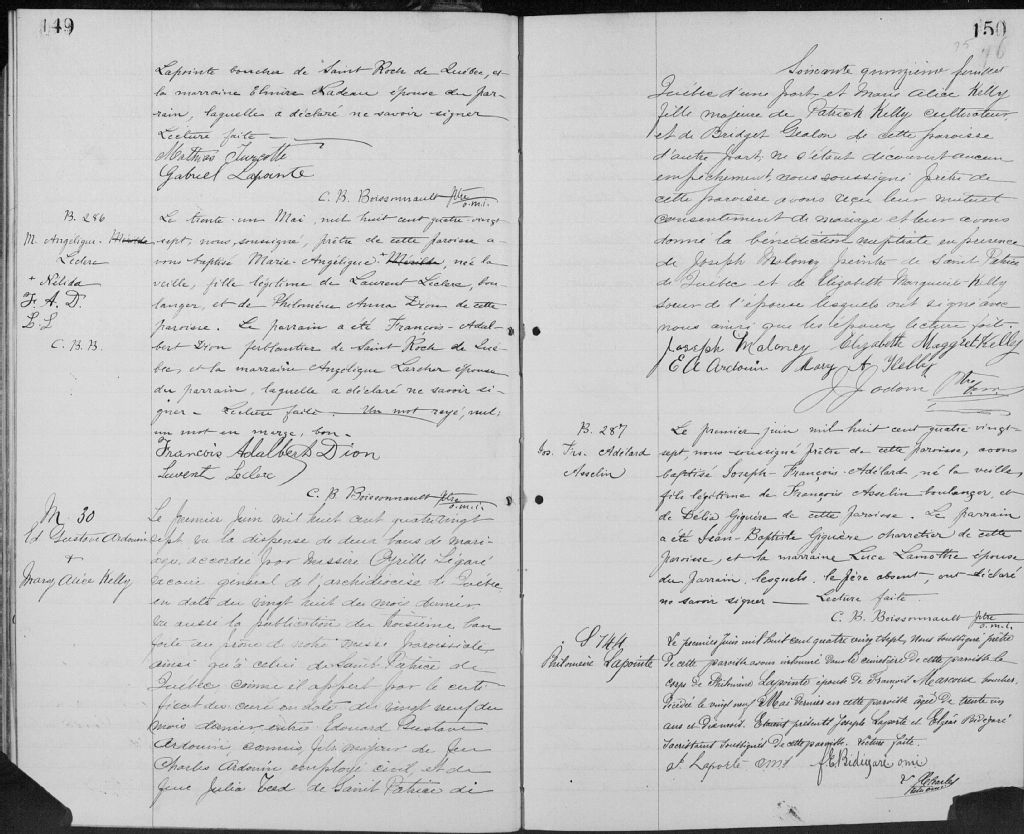 149
Lapointe boucher de Saint Roch de Québec, et
la marraine Elmire Nadeau épouse du par-
rain, laquelle a déclaré ne savoir signer
Lecture faite —
Mathias Turcotte
Gabriel Lapointe
C. B. Boissonnault ptre
o.m.i.
B. 286
M. Angélique-
Leclerc
+ Nélida
F. A. D.
L L
C. B. B.
Le trente-un Mai, mil huit cent quatre-vingt
sept, nous, soussigné, prêtre de cette paroisse a-
vons baptisé Marie-Angélique + née la
veille, fille légitime de Laurent Leclerc, bou-
langer, et de Philomène Anna Dion de cette
paroisse. Le parrain a été François-Adal-
bert Dion ferblantier de Saint Roch de Qué-
bec, et la marraine Angélique Larcher épouse
du parrain, laquelle a déclaré ne savoir si-
gner — Lecture faite. — Un mot rayé, nul;
un mot en marge, bon —
François Adalbert Dion
Laurent Leclerc
C. B. Boissonnault ptre
o.m.i.
M 30
Ed Gustave Ardouin
+
Mary Alice Kelly
Le premier Juin mil huit cent quatre vingt
sept vu la dispense de deux bans de mari-
age accordée par Messire Cyrille Légaré
vicaire général de l'archidiocèse de Québec
en date du vingt huit du mois dernier
vu aussi la publication du troisième ban
faite au prône de notre messe paroissiale
ainsi qu'à celui de Saint Patrice de
Québec, comme il appert par le certi
ficat du curé en date du vingt neuf du
mois dernier entre Edouard Gustave
Ardouin, commis, fils majeur de feu
Charles Ardouin employé civil, et de
feue Julia de Saint Patrice de
150
76
Soixante quinzième feuillet
Québec d'une part et Marie Alice Kelly
fille majeure de Patrick Kelly cultivateur
et de Bridget Gealon de cette paroisse
d'autre part, ne s'étant découvert aucun
empêchement, nous soussigné prêtre de
cette paroisse avons reçu leur mutuel
consentement de mariage et leur avons
donné la bénédiction nuptiale en présence
de Joseph Moloney peintre de Saint Patrice
de Québec et de Elizabeth Margueret Kelly
soeur de l'épouse lesquels ont signé avec
nous ainsi que les époux, lecture faite.
Joseph Maloney Elizabeth Maggret Kelly
E G Ardouin Mary A Kelly
J Jodoin Ptre
o.m.i.
B. 287
Jos. Frs. Adélard
Asselin
Le premier juin mil huit cent quatre-vingt-
sept, nous soussigné prêtre de cette paroisse, avons
baptisé Joseph-François-Adélard, né la veille,
fils légitime de François Asselin boulanger, et
de Délia Giguère de cette paroisse. Le parrain
a été Jean-Baptiste Giguère charretier de cette
paroisse, et la marraine Luce Lamothe épouse
du parrain, lesquels, le père absent, ont déclaré
ne savoir signer — Lecture faite.
C. B. Boissonnault ptre
o.m.i.
S 144
Philomène Lapointe
Le premier Juin mil huit cent quatre vingt sept, nous soussigné prêtre
de cette paroisse avons inhumé dans le cimetière de cette paroisse le
corps de Philomène Lapointe épouse de François Marcoux boucher,
décédée le vingt neuf Mai dernier en cette paroisse âgée de trente un
ans et dix mois. Etaient présents Joseph Laporte et Elzéar Bédigaré
sacristains soussignés de cette paroisse. Lecture faite.
Jt Laporte omi f E Bédigaré omi
ptre omi